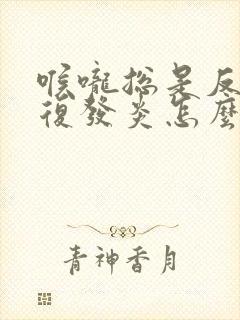 喉嚨總是反
復發炎怎麼
青神香月